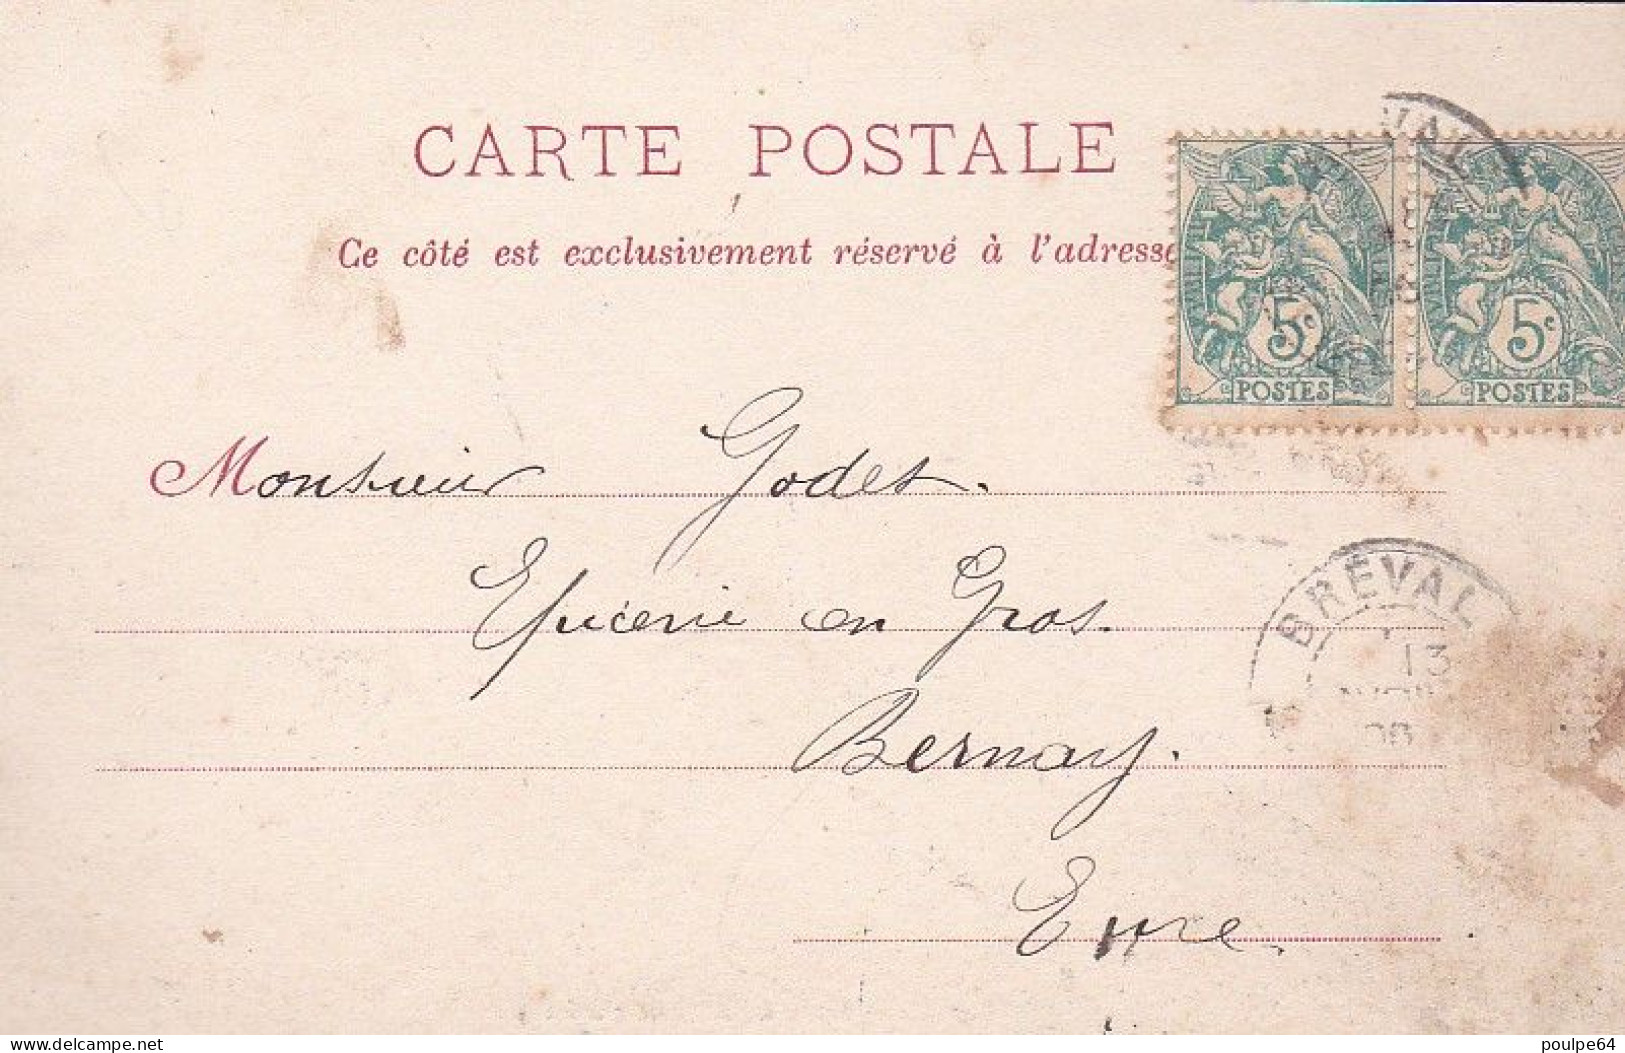 CARTE POSTALE
Ce côté est exclusivement réservé à l'adresse
5c
POSTES
5c
POSTES
Monsieur Godet.
Epicerie en Gros.
BRÉVAL
13
Bernay.
Eure.
delcampe.net
poulpe64